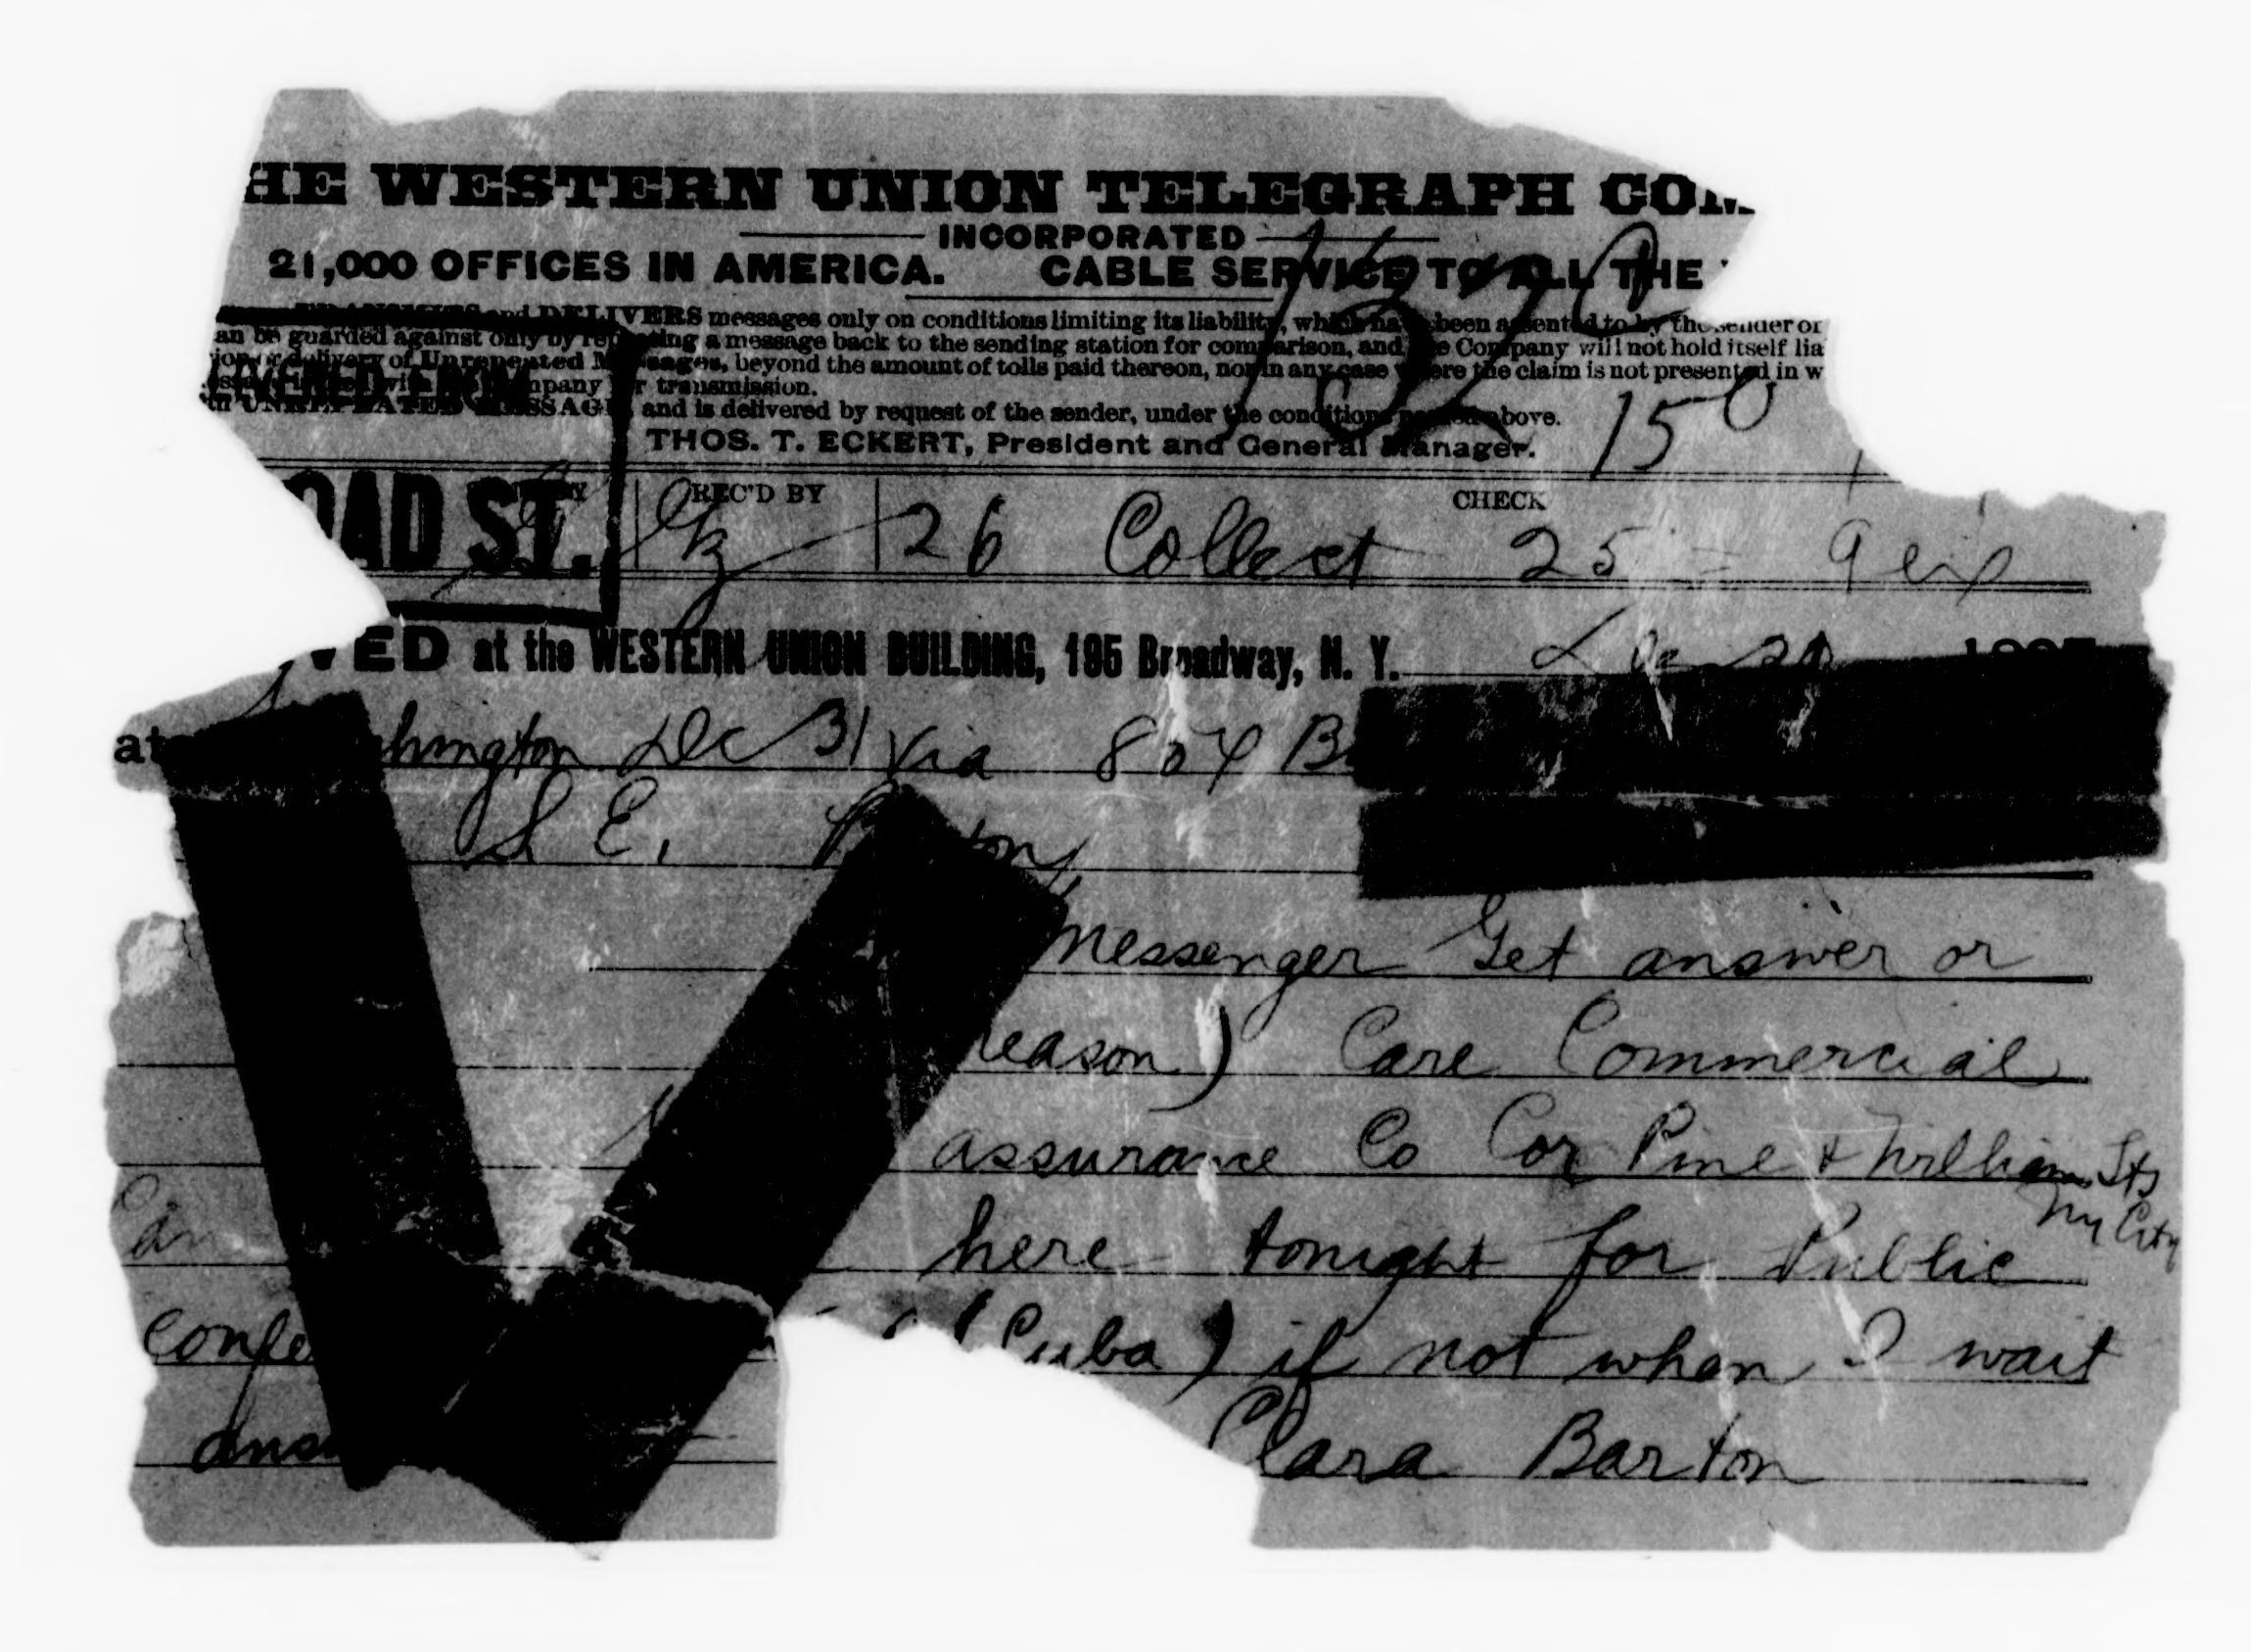 HE WESTERN UNION TELEGRAPH COM
INCORPORATED
21,000 OFFICES IN AMERICA. CABLE SERVICE TO ALL THE
and DELIVERS messages only on conditions limiting its liability, which have been assented to by the sender of
an be guarded against only by repeating a message back to the sending station for comparison, and the Company will not hold itself lia
or delivery of Unrepeated Messages, beyond the amount of tolls paid thereon, nor in any case where the claim is not presented in w
Company for transmission.
UNREPEATED MESSAGE and is delivered by request of the sender, under the conditions named above.
THOS. T. ECKERT, President and General Manager.
150
OAD ST.
REC'D BY CHECK
26 Collect 25
VED at the WESTERN UNION BUILDING, 195 Broadway, N. Y.
at hington Dc 31 Via 804 B
S E. ton
Messenger Get answer or
reason) Care Commercial
assurance Co Cor Pine & William Sts
Ny City
Can here tonight for Public
confe (Cuba) if not when I wait
ans
Clara Barton